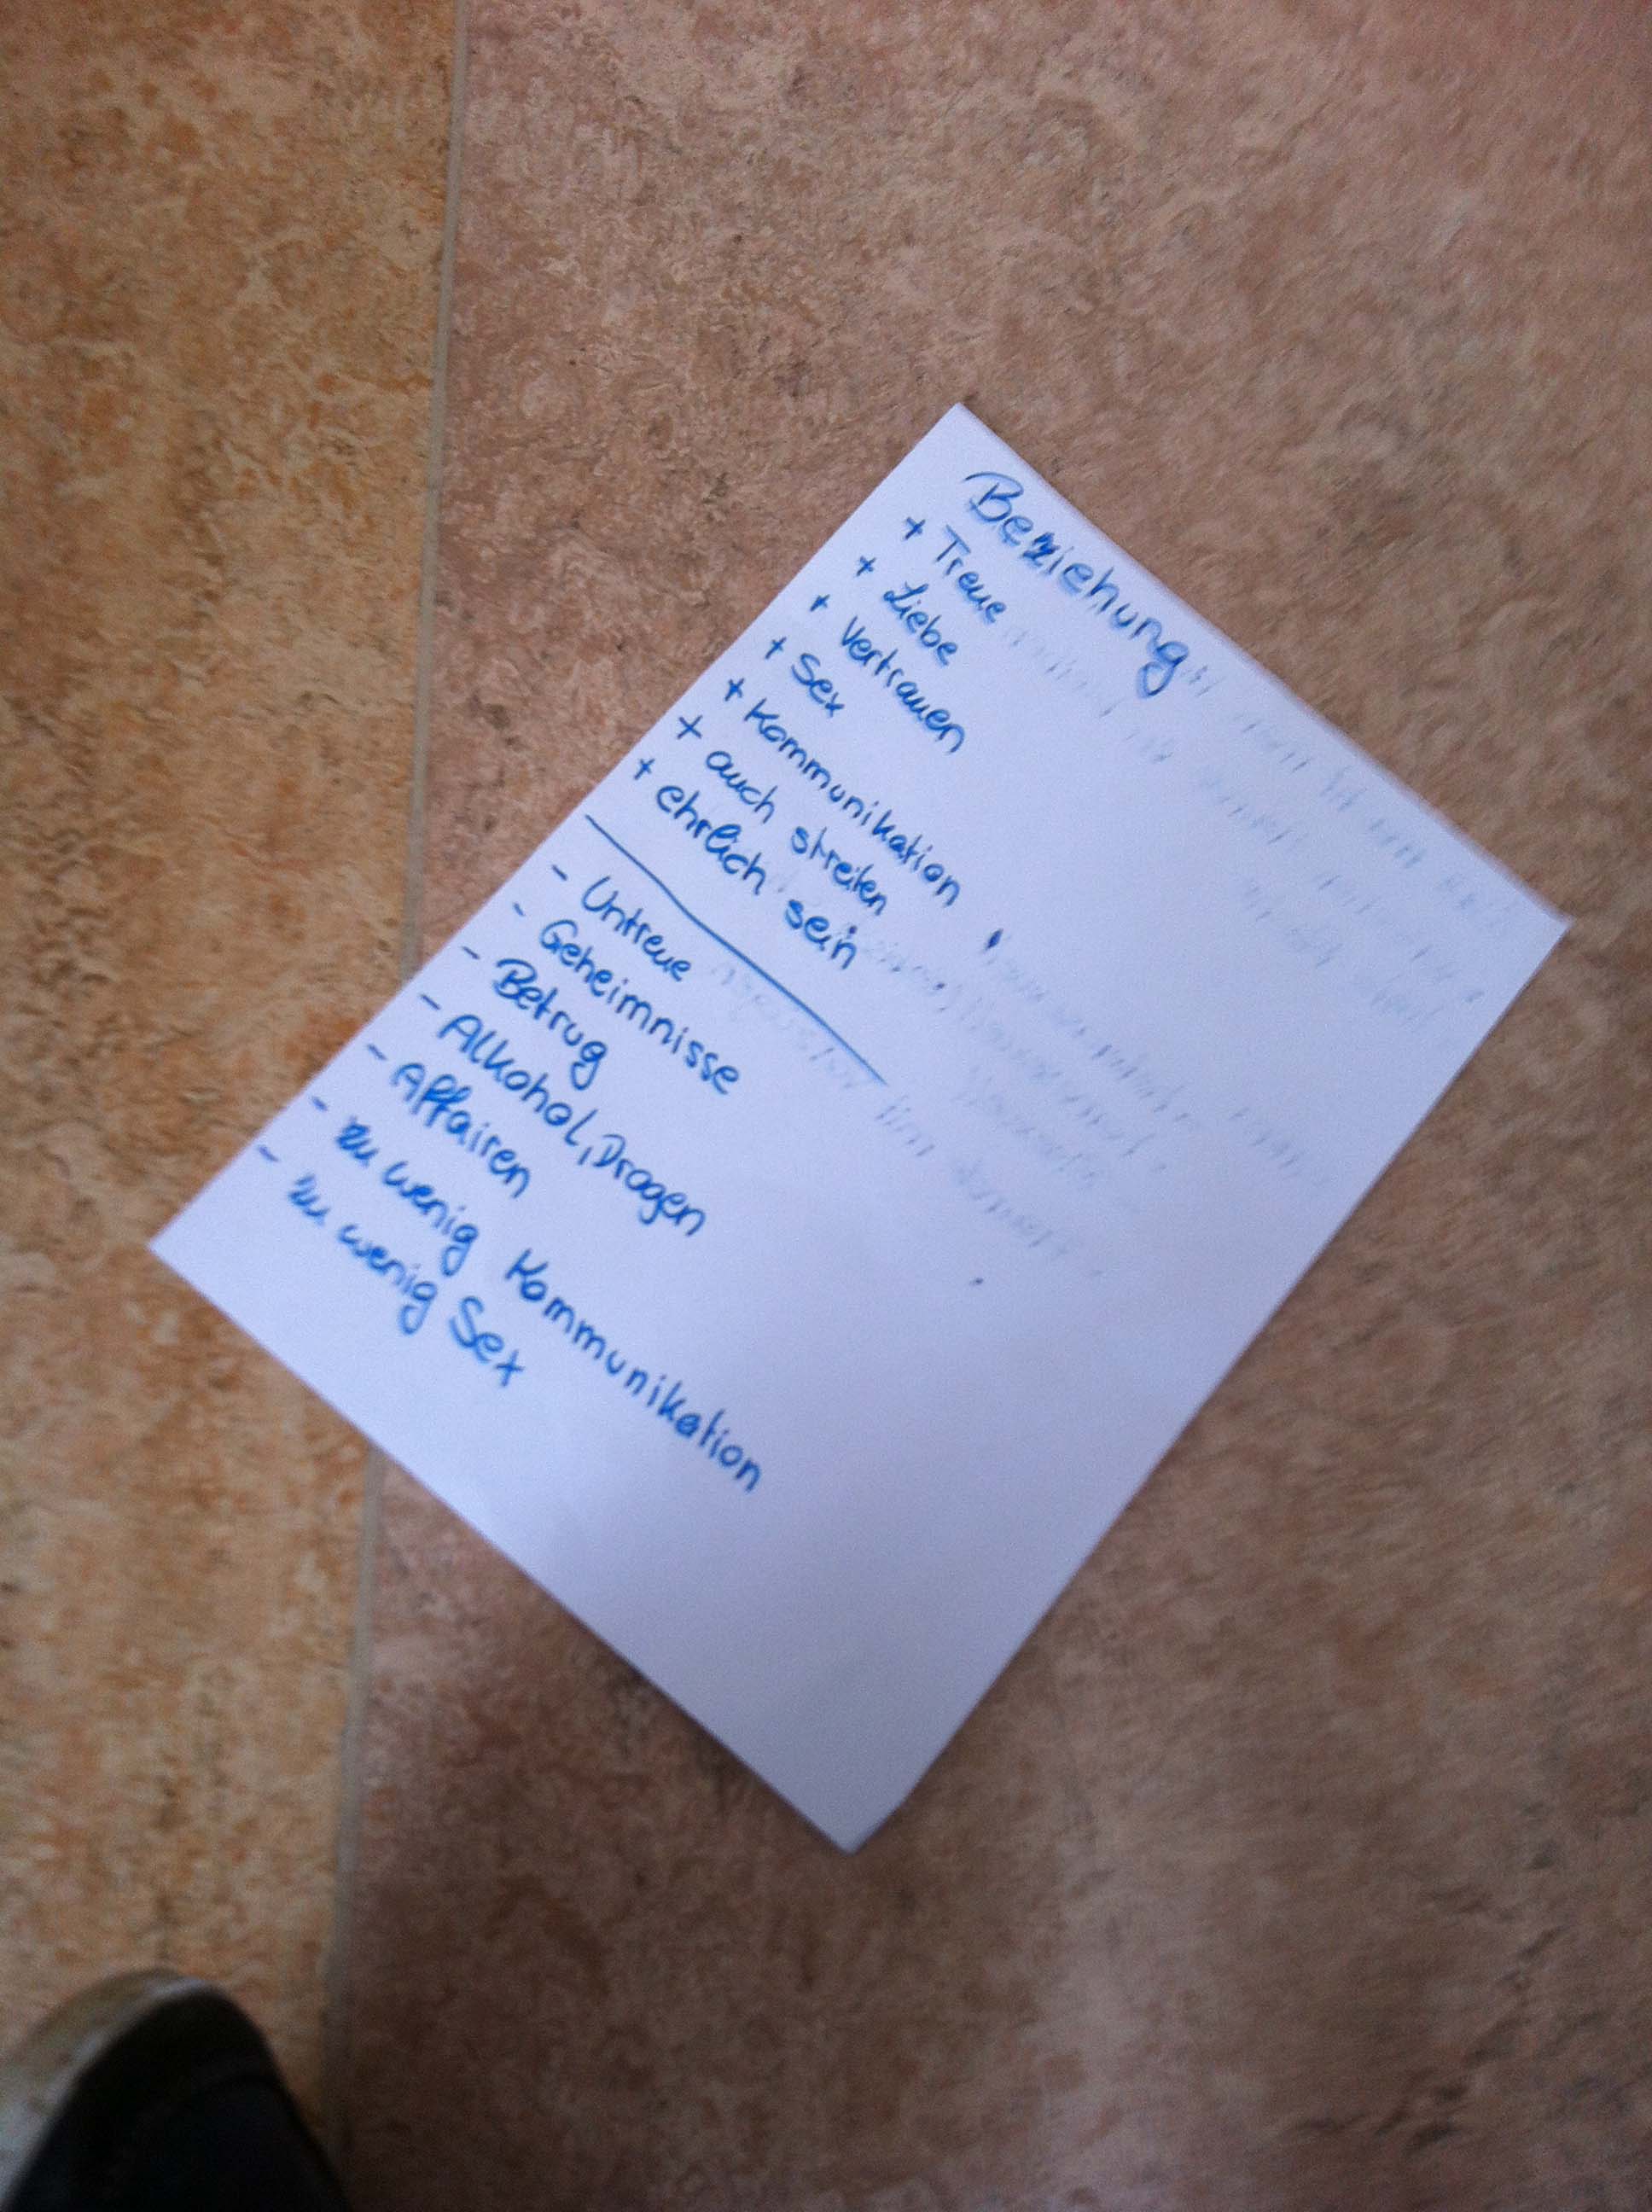 Beziehung
+ Treue
+ Liebe
+ Vertrauen
+ Sex
+ Kommunikation
+ auch streiten
+ ehrlich sein
- Untreue
- Geheimnisse
- Betrug
- Alkohol, Drogen
- Affairen
- zu wenig Kommunikation
- zu wenig Sex